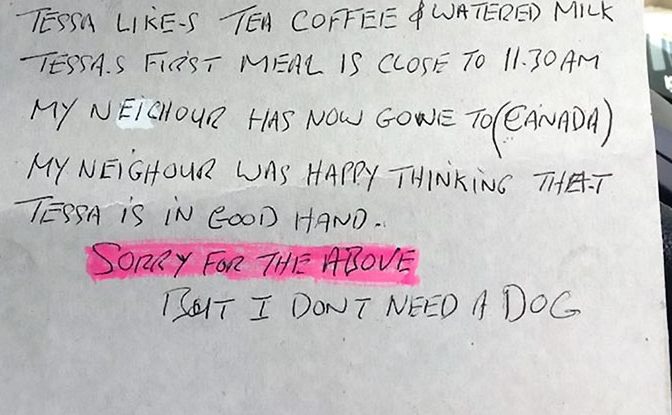 TESSA LIKE-S TEA COFFEE & WATERED MILK
TESSA.S FIRST MEAL IS CLOSE TO 11.30AM
MY NEICHOUR HAS NOW GONE TO (CANADA)
MY NEIGHOUR WAS HAPPY THINKING THE-T
TESSA IS IN GOOD HAND.
SORRY FOR THE ABOVE
BUT I DONT NEED A DOG